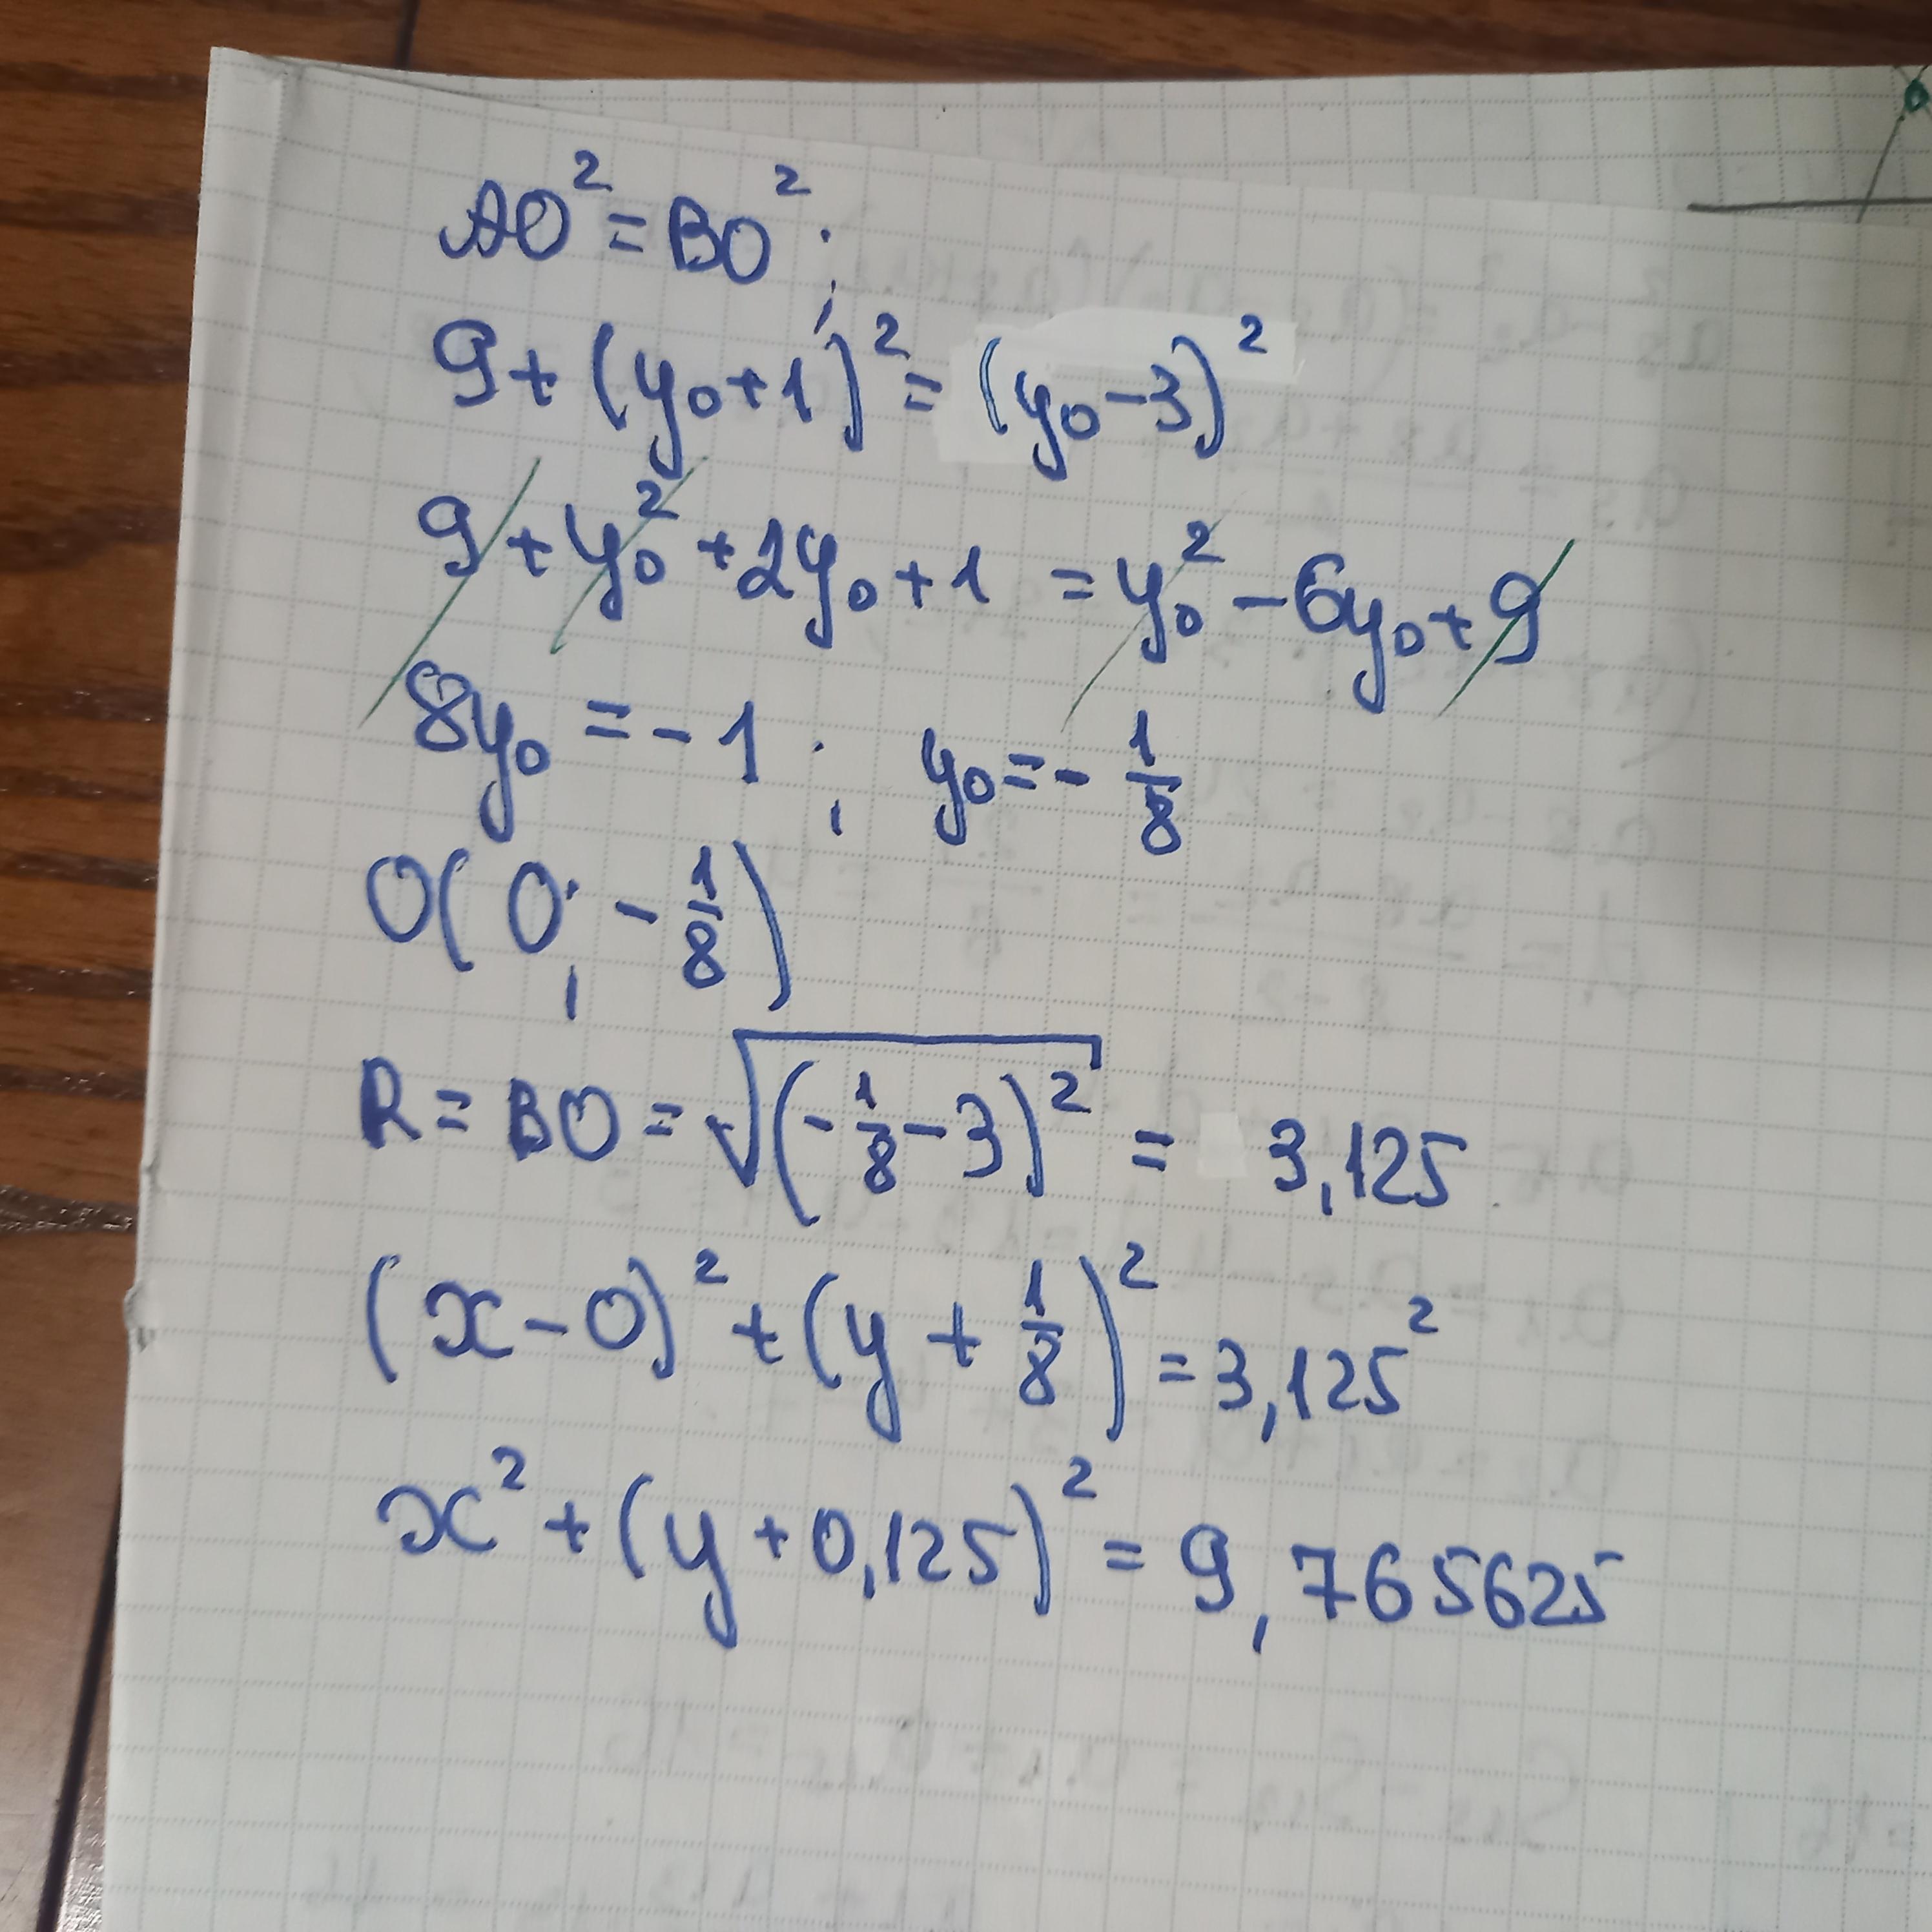 AO² = BO²;
9 + (y₀ + 1)² = (y₀ - 3)²
9 + y₀² + 2y₀ + 1 = y₀² - 6y₀ + 9
8y₀ = - 1; y₀ = - 1/8
O(0; - 1/8)
R = BO = √((- 1/8 - 3)²) = 3,125
(x - 0)² + (y + 1/8)² = 3,125²
x² + (y + 0,125)² = 9,765625